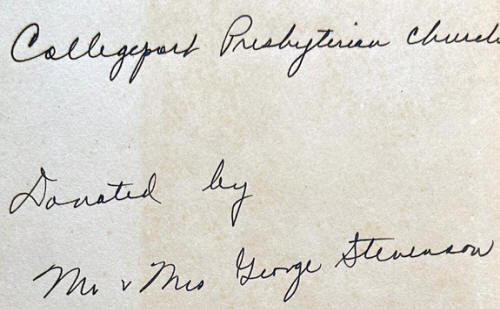 Collegeport Presbyterian church
Donated by
Mr & Mrs George Stevenson